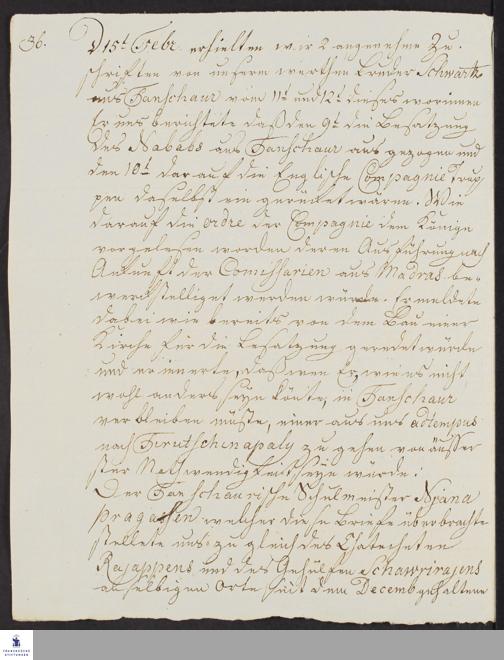 36.
D 15t. Febr. erhielten wir 2 angenehme Zu-
schriften von unserm werthen Bruder Schwartz
aus Tanschaur vom 11t. und 12t. dieses worinnen
Er uns berichtete daß den 9t. die Besatzung
des Nababs aus Tanschaur ausgezogen und
den 10t. darauf die Englische Compagnie Troup-
pen daselbst eingerücket waren. Wie
darauf die ordre der Compagnie dem Könige
vorgelesen worden deren Ausführung nach
Ankunft der Comissarien aus Madras be-
werckstelliget werden würde. Er meldete
dabei wie bereits von dem Bau einer
Kirche für die Besatzung geredet würde
und erinnerte, daß wen Er, wie es nicht
wohl anders seyn könte, in Tanschaur
verbleiben müste, einer aus uns ad tempus
nach Tirutschinapaly zu gehen von äusser-
ster Nothwendigkeit seyn würde.
Der Tanschaurische Schulmeister Njana
pragasen welcher diese Briefe überbrachte
stellete uns zugleich des Catecheten
Rajappens und des Gehülfen Schawrirajens
an selbigem Orte seit dem Decemb gehaltene
FRANCKESCHE
STIFTUNGEN